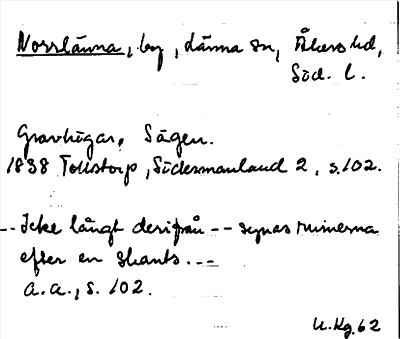 Norrlänna, by, Länna sn, Åkers hd,
Söd. l.
Gravhögar, Sägen.
1838 Tollstorp, Södermanland 2, s.102.
-- Icke långt derifrån -- synas ruinerna
efter en skants. --
a.a., s. 102.
U. Kg. 62